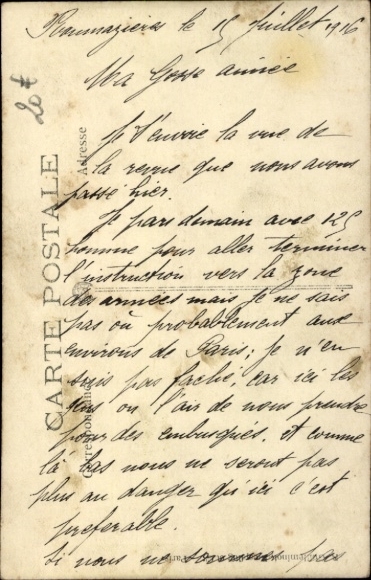 Roumazières le 15 Juillet 1916
Ma Gosse aimée
Je t'envoie la vue de
la revue que nous avons
passé hier.
Je pars demain avec 125
homme pour aller terminer
l'instruction vers la zone
des armées mais je ne sais
pas où probablement aux
environs de Paris; je n'en
suis pas faché, car ici les
gens on l'air de nous prendre
pour des embusqués. et comme
là bas nous ne seront pas
plus au danger qu'ici c'est
preferable.
Si nous ne pas
20 €
CARTE POSTALE
Adresse
Correspondance